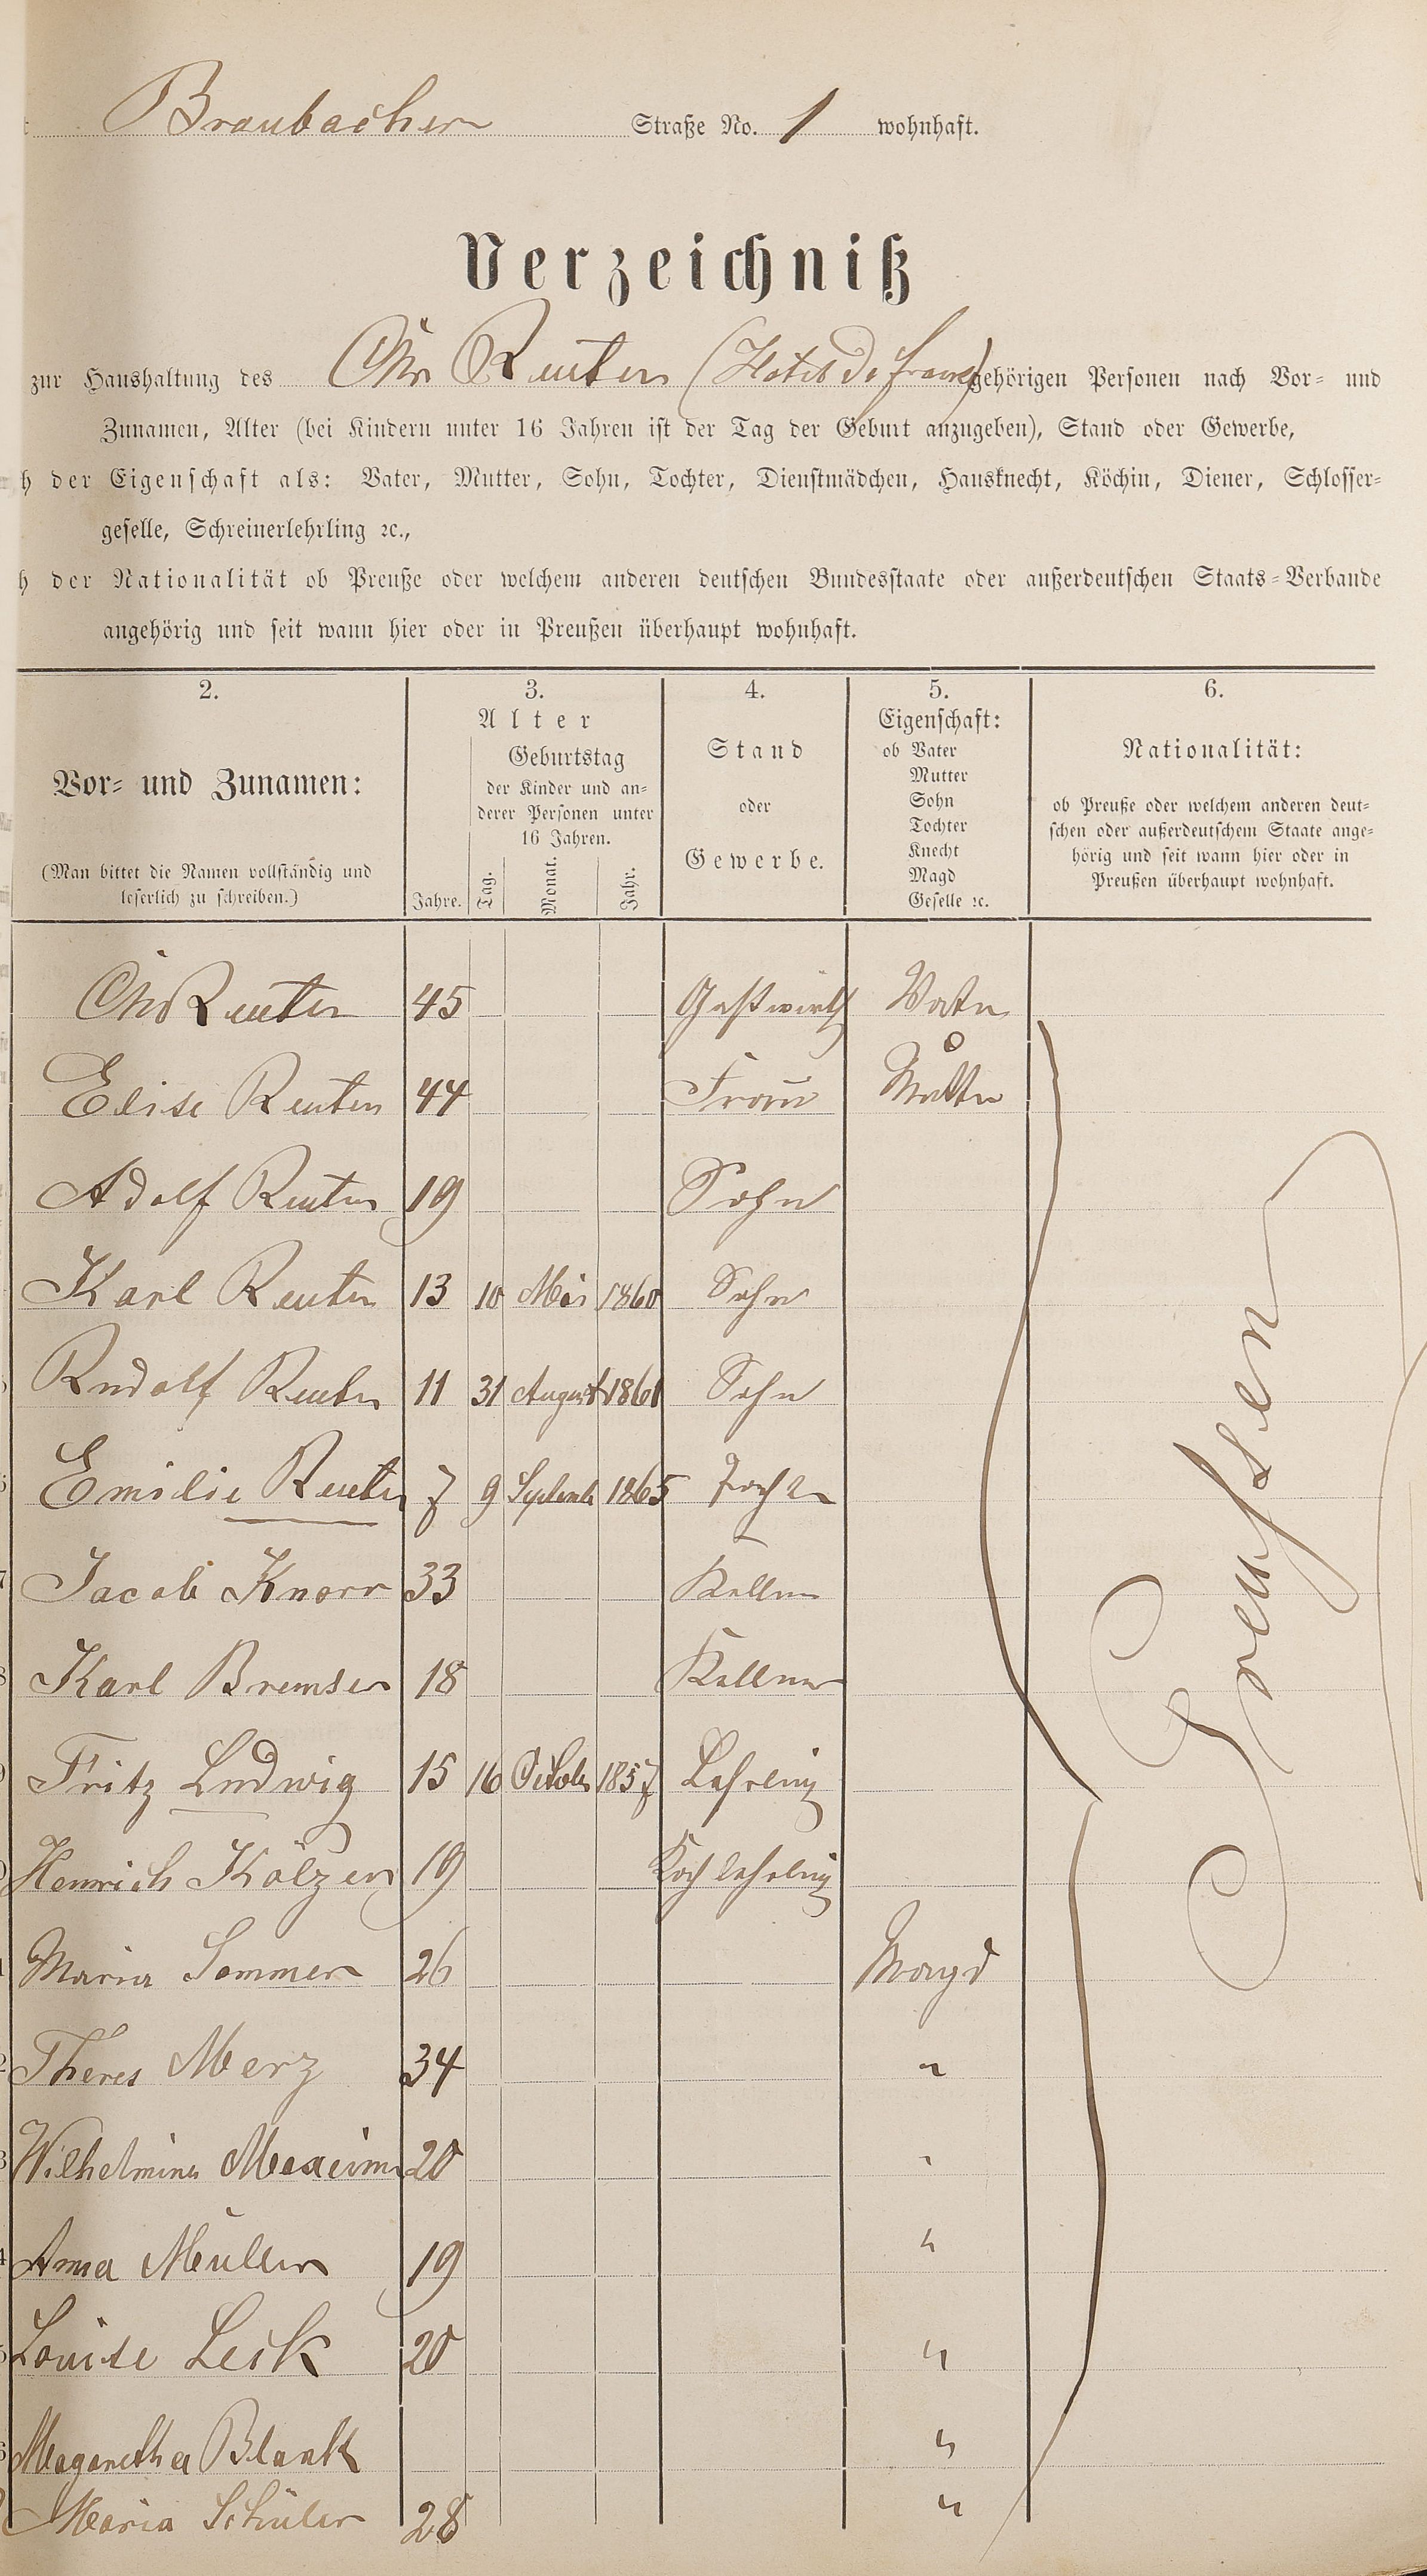 Braubacher Straße No. 1 wohnhaft.
Verzeichniß
zur Haushaltung des Chr Reuter (Hotel de France) gehörigen Personen nach Vor- und
Zunamen, Alter (bei Kindern unter 16 Jahren ist der Tag der Geburt anzugeben), Stand oder Gewerbe,
h der Eigenschaft als: Vater, Mutter, Sohn, Tochter, Dienstmädchen, Hausknecht, Köchin, Diener, Schlosser-
geselle, Schreinerlehrling ꝛc.,
h der Nationalität ob Preuße oder welchem anderen deutschen Bundesstaate oder außerdeutschen Staats-Verbande
angehörig und seit wann hier oder in Preußen überhaupt wohnhaft.
2.
Vor- und Zunamen:
(Man bittet die Namen vollständig und
leserlich zu schreiben.)
3.
Alter
Jahre.
Geburtstag
der Kinder und an-
derer Personen unter
16 Jahren.
Tag.
Monat.
Jahr.
4.
Stand
oder
Gewerbe.
5.
Eigenschaft:
ob Vater
Mutter
Sohn
Tochter
Knecht
Magd
Geselle ꝛc.
6.
Nationalität:
ob Preuße oder welchem anderen deut-
schen oder außerdeutschem Staate ange-
hörig und seit wann hier oder in
Preußen überhaupt wohnhaft.
Chr Reuter 45 Gastwirth Vater
Elise Reuter 44 Frau Mutter
Adolf Reuter 19 Sohn
Karl Reuter 13 10 Mai 1860 Sohn
Rudolf Reuter 11 31 August 1861 Sohn
Emilie Reuter 7 9 Septembr 1865 Tochter
Jacob Knorr 33 Kellner
Karl Bremser 18 Kellner
Fritz Ludwig 15 16 October 1857 Lehrling
Henrich Kölzer 19 Koch lehrling
Maria Sommer 26 Magd
Theres Merz 34 "
Wilhelmine 20 "
Anna Müller 19 "
Louise Leik 20 "
Magaretha Blank "
Maria Schüler 28 "
Preussen